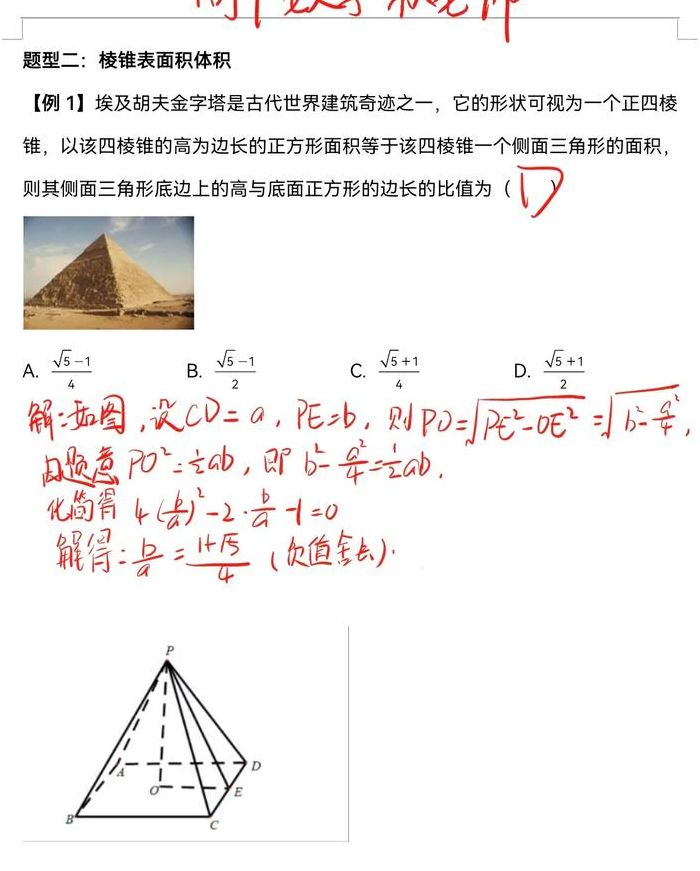 题型二：棱锥表面积体积
【例 1】埃及胡夫金字塔是古代世界建筑奇迹之一，它的形状可视为一个正四棱
锥，以该四棱锥的高为边长的正方形面积等于该四棱锥一个侧面三角形的面积，
则其侧面三角形底边上的高与底面正方形的边长的比值为（ D ）
A. (√5-1)/4 B. (√5-1)/2 C. (√5+1)/4 D. (√5+1)/2
解：如图，设CD=a，PE=b，则PO=√(PE²-OE²)=√(b²-a²/4)，
由题意PO²=1/2ab，即b²-a²/4=1/2ab.
化简得 4(b/a)²-2·b/a-1=0
解得：b/a=(1+√5)/4（负值舍去）.
P
A
D
O
E
B
C